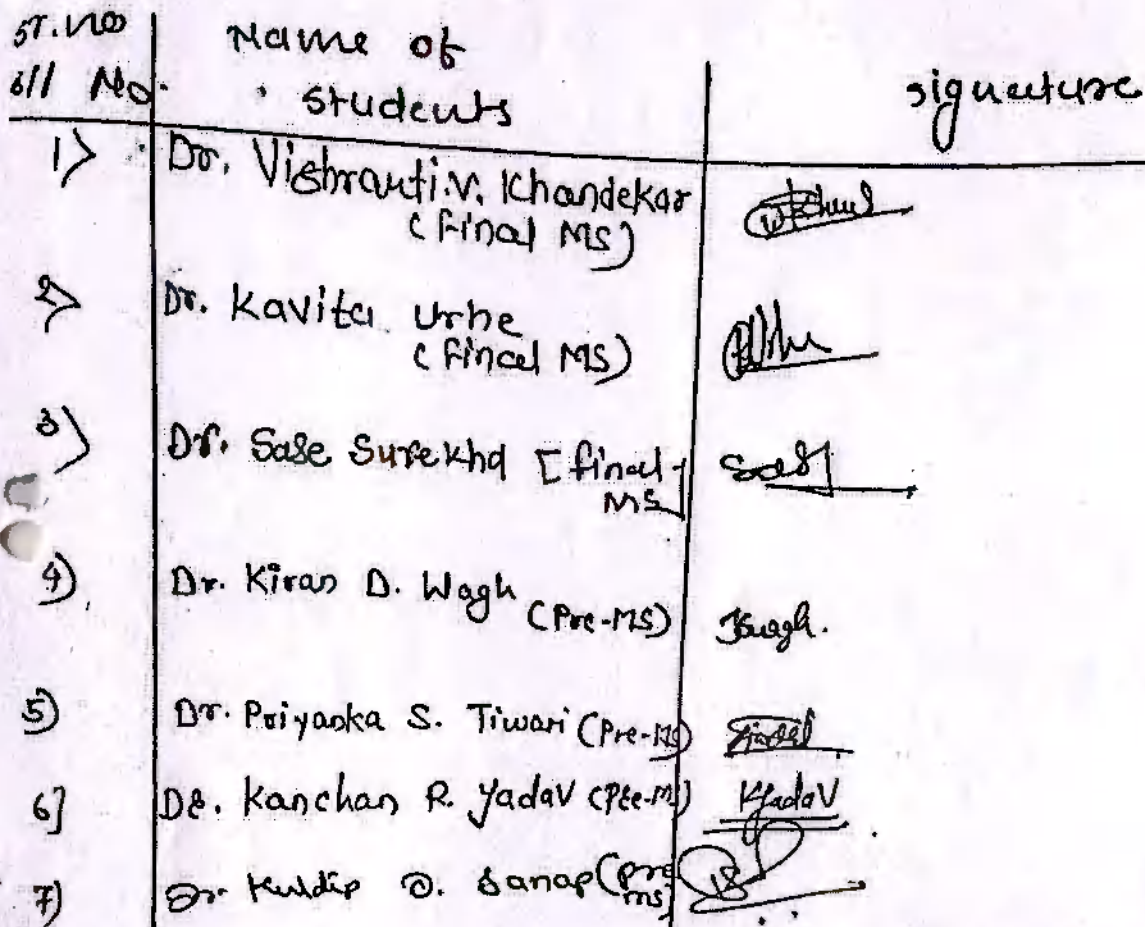 Name of
No. Students signature
1) Dr. Vishranti.V. Khandekar
(final MS)
2) Dr. Kavita Urhe
(final MS)
3) Dr. Sase Surekha [final
MS]
4) Dr. Kiran D. Wagh
(Pre-MS) Kwagh.
5) Dr. Priyanka S. Tiwari (Pre-MS)
6] Dr. Kanchan R. Yadav (Pre-MS) KYadaV
7) Dr. Kuldip D. Sanap (Pre
MS)